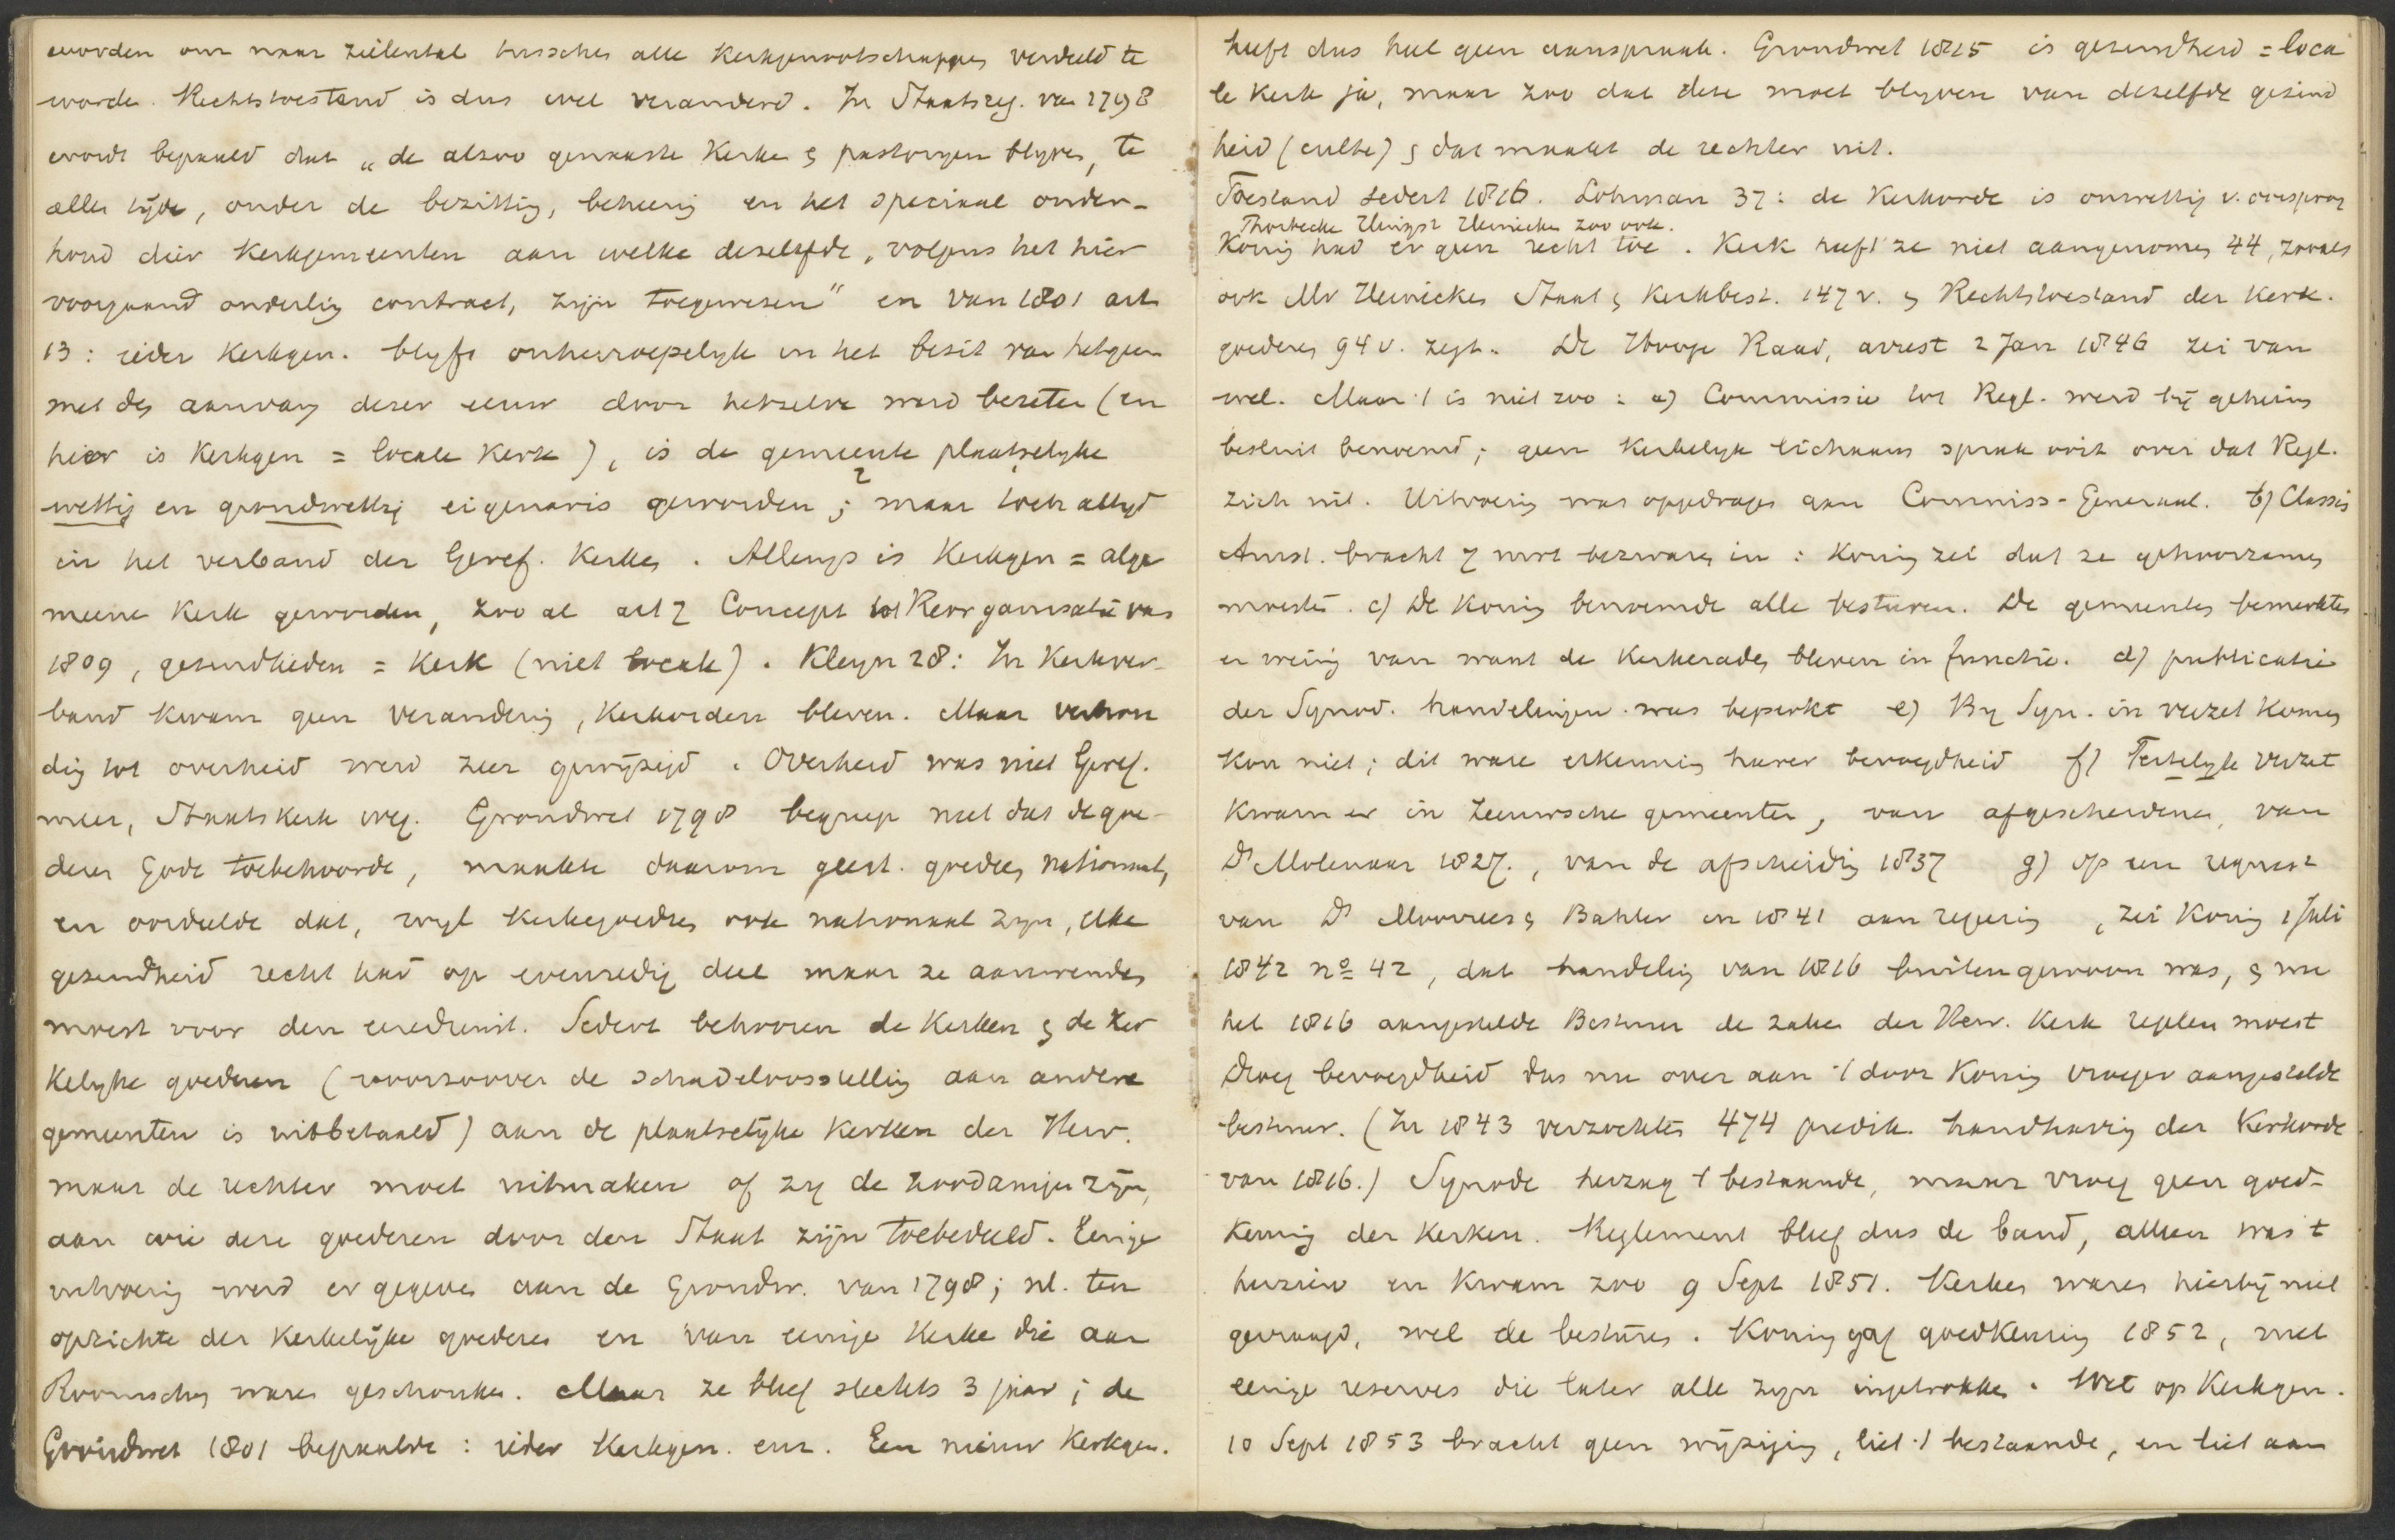 worden om naar zielental tusschen alle Kerkgenootschappen verdeeld te
worde. Rechtstoestand is dus wel veranderd. In Staatsreg. van 1798
wordt bepaald dat „de alzoo genaaste Kerke & pastoryen blyven, te
allen tijde, onder de bezitting, beheering en het speciaal onder-
houd dier Kerkgemeenten aan welke dezelfde, volgens het hier
voorgaand onderling contract, zijn toegewesen" en van 1801 art
13: ieder Kerkgen. blyft onherroepelyk in het bezit van hetgeen
met den aanvang dezer eeuw door hetzelve werd bezeten (en
hier is Kerkgen = locale Kerk), is de gemeente plaatselyke
wettig en grondwettig eigenares geworden ; maar toch altyd
in het verband der Geref. Kerken. Allengs is Kerkgen = alge
meene Kerk geworden, zoo al art 2 Concept tot Reorganisatie van
1809, gezindheden = Kerk (niet locale). Kleyn 28: In Kerkver-
band kwam geen verandering, Kerkorden bleven. Maar verhou
ding tot overheid werd zeer gewijzigd. Overheid was niet Geref.
meer, Staatskerk weg. Grondwet 1798 begreep niet dat de goe-
deren Gode toebehoorde, maakte daarom geest. goederen nationaal,
en oordeelde dat, wyl Kerkegoederen ook nationaal zyn, elke
gezindheid recht had op evenredig deel maar ze aanwenden
moest voor den eeredienst. Sedert behooren de Kerken & de Ker
kelyke goederen (voorzoover de schadeloosstelling aan andere
gemeenten is uitbetaald) aan de plaatselijke Kerken der Herv.
maar de rechter moet uitmaken of zy de zoodanigen zijn,
aan wie deze goederen door den Staat zijn toebedeeld. Eenige
uitvoering werd er gegeven aan de Grondw. van 1798; nl. ten
opzichte der Kerkelijke goederen en van eenige Kerke die aan
Roomschen waren geschonken. Maar ze bleef slechts 3 jaar; de
Grondwet 1801 bepaalde: ieder Kerkgen. enz. Een nieuw Kerkgen.
heeft dus heel geen aanspraak. Grondwet 1815 is gezindheid = loca
le Kerk ja, maar zoo dat deze moet blyven van dezelfde gezind
heid (culte) & dat maakt de rechter uit.
Toestand sedert 1816. Lohman 37: de Kerkorde is onwettig v. oorsprong
Thorbecke Heinicken zoo ook.
Koning had er geen recht toe. Kerk heeft ze niet aangenomen 44, zooals
ook Mr Heinicken Staat & Kerkbest. 147 v. & Rechtstoestand der Kerk.
goederen 94 v. zegt. De Hooge Raad, arrest 2 Jan 1846 zei van
wel. Maar 't is niet zoo: a) Commissie tot Regl. werd bij geheim
besluit benoemd; geen Kerkelyk lichaam sprak ooit over dat Regl.
zich uit. Uitvoering was opgedragen aan Commiss-Generaal. b) Classis
Amst. bracht 7 mrt bezwaren in: Koning zei dat ze gehoorzamen
moesten. c) De Koning benoemde alle besturen. De gemeenten bemerkten
er weinig van want de Kerkeraden bleven in functie. d) publicatie
der Synod. handelingen was beperkt e) By Syn. in verzet komen
kon niet; dit ware erkenning harer bevoegdheid f) Feitelyk verzet
kwam er in Zeeuwsche gemeenten, van afgescheidenen, van
Ds Molenaar 1827., van de afscheiding 1837 g) op een request
van Ds Moorrees & Bahler in 1841 aan regering, zei Koning 1 Juli
1842 no 42, dat handeling van 1816 buitengewoon was, & nu
het 1816 aangestelde Bestuur de zaken der Herv. Kerk regelen moest
Droeg bevoegdheid dus nu over aan 't door Koning vroeger aangestelde
bestuur. (In 1843 verzochten 474 predik. handhaving der Kerkorde
van 1816.) Synode herzag 't bestaande, maar vroeg geen goed-
keuring der Kerken. Reglement bleef dus de band, alleen was 't
herzien en kwam zoo 9 Sept 1851. Kerken waren hierbij niet
gevraagd, wel de besturen. Koning gaf goedkeuring 1852, met
eenige reserves die later alle zyn ingetrokken. Wet op Kerkgen.
10 Sept 1853 bracht geen wijziging, liet 't bestaande, en liet aan